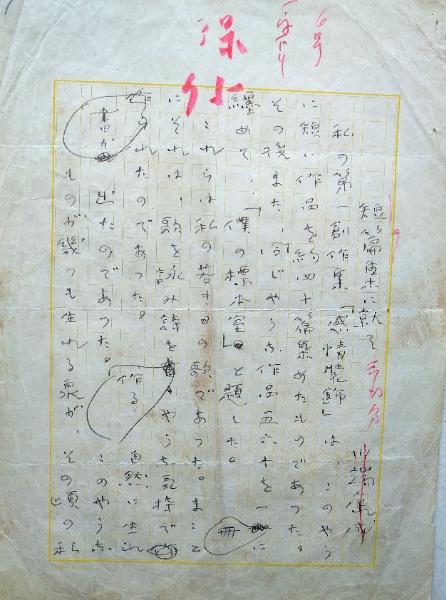 6号
短篇集に就て 川端康成
私の第一創作集「感情装飾」は、このやう
に短い作品を約四十篇集めたものであつた。
その後また、同じやうな作品五六十を一冊に
纏めて、「僕の標本室」と題した。
これらは私の若き日の歌であつた。まこと
にそれは、歌を詠み詩を作るやうな気持で
書かれたのであつた。自然に生れ
出たのであつた。このやうな
ものが幾つも生れる泉が、その頃の私